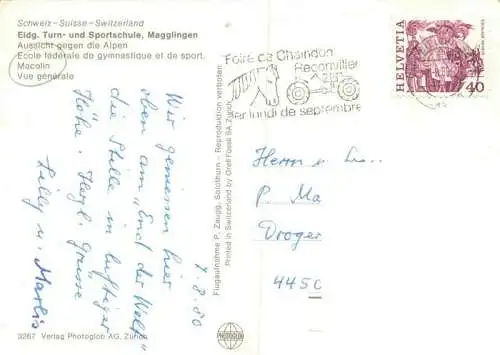 Schweiz - Suisse - Switzerland
Eidg. Turn- und Sportschule, Magglingen
Aussicht gegen die Alpen
Ecole fédérale de gymnastique et de sport.
Macolin
Vue générale
Wir geniessen hier
oben am "End der Welt"
die Stille in luftiger
Höhe. Herzl. Grüsse
Lilly u. Marlis
7.8.80
Flugaufnahme P. Zaugg, Solothurn - Reproduktion verboten
Printed in Switzerland by Orell Füssli SA Zürich
PHOTOGLOB
3267 Verlag Photoglob AG, Zürich
Foire de Chaindon
Reconvilier
1er lundi de septembre
HELVETIA
40
Herrn u.
P. Ma
Droger
445